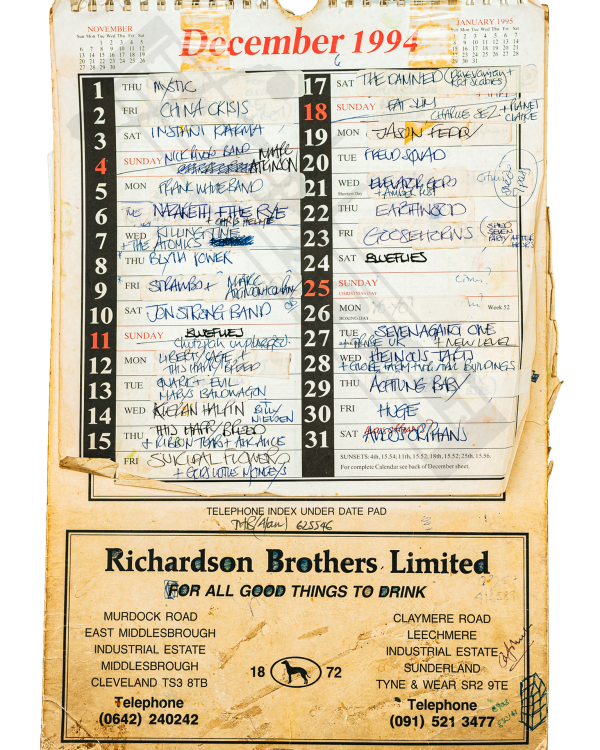 NOVEMBER
Sun Mon Tue Wed Thu Fri Sat
1 2 3 4 5
6 7 8 9 10 11 12
13 14 15 16 17 18 19
20 21 22 23 24 25 26
27 28 29 30
December 1994
JANUARY 1995
Sun Mon Tue Wed Thu Fri Sat
1 2 3 4 5 6 7
8 9 10 11 12 13 14
15 16 17 18 19 20 21
22 23 24 25 26 27 28
29 30 31
1 THU MYSTIC
2 FRI CHINA CRISIS
3 SAT INSTANT KARMA
4 SUNDAY NICK RIVERS BAND MARC ATKINSON
5 MON FRANK WHITE BAND
6 TUE NAZARETH + THE RYE
+ CHRIS HELME
7 WED KILLING TIME
+ THE ATOMICS
8 THU BLYTH POWER
9 FRI STRAMBO + MARC ATKINSON + COLIN
10 SAT JON STRONG BAND
11 SUNDAY BLUEFLIES
chutzpah unplugged
12 MON LIBERTY CAGE +
THIS HAPPY BREED
13 TUE EVIL
MARYS BANDWAGON
14 WED KIERAN HALPIN BILLY NIELSEN
15 THU THIS HAPPY BREED
+ RIBBON TEARS +
FRI SUICIDAL FLOWERS
+ GODS LITTLE MONKEYS
17 SAT THE DAMNED
18 SUNDAY FAT JIM
CHARLIE SEZ + PLANET CLAIRE
19 MON JASON FEDDY
20 TUE PREAD SQUAD
21 WED ELEVATOR GODS
22 THU EARTHWOOD
23 FRI GOOSEHORNS SHED SEVEN PARTY AFTER HOURS
24 SAT BLUEFLIES
25 SUNDAY
CHRISTMAS DAY
26 MON Week 52
BOXING DAY
27 TUE SEVEN AGAINST ONE
+ UK + NEW LEVEL
28 WED HEINOUS TARTS
+ INDUSTRIAL BUILDINGS
29 THU ACHTUNG BABY
30 FRI HUGE
31 SAT ORPHANS
SUNSETS: 4th, 15.54; 11th, 15.52; 18th, 15.52; 25th, 15.56.
For complete Calendar see back of December sheet.
TELEPHONE INDEX UNDER DATE PAD
(Alan) 625546
Richardson Brothers Limited
FOR ALL GOOD THINGS TO DRINK
MURDOCK ROAD
EAST MIDDLESBROUGH
INDUSTRIAL ESTATE
MIDDLESBROUGH
CLEVELAND TS3 8TB
Telephone
(0642) 240242
18 72
CLAYMERE ROAD
LEECHMERE
INDUSTRIAL ESTATE
SUNDERLAND
TYNE & WEAR SR2 9TE
Telephone
(091) 521 3477